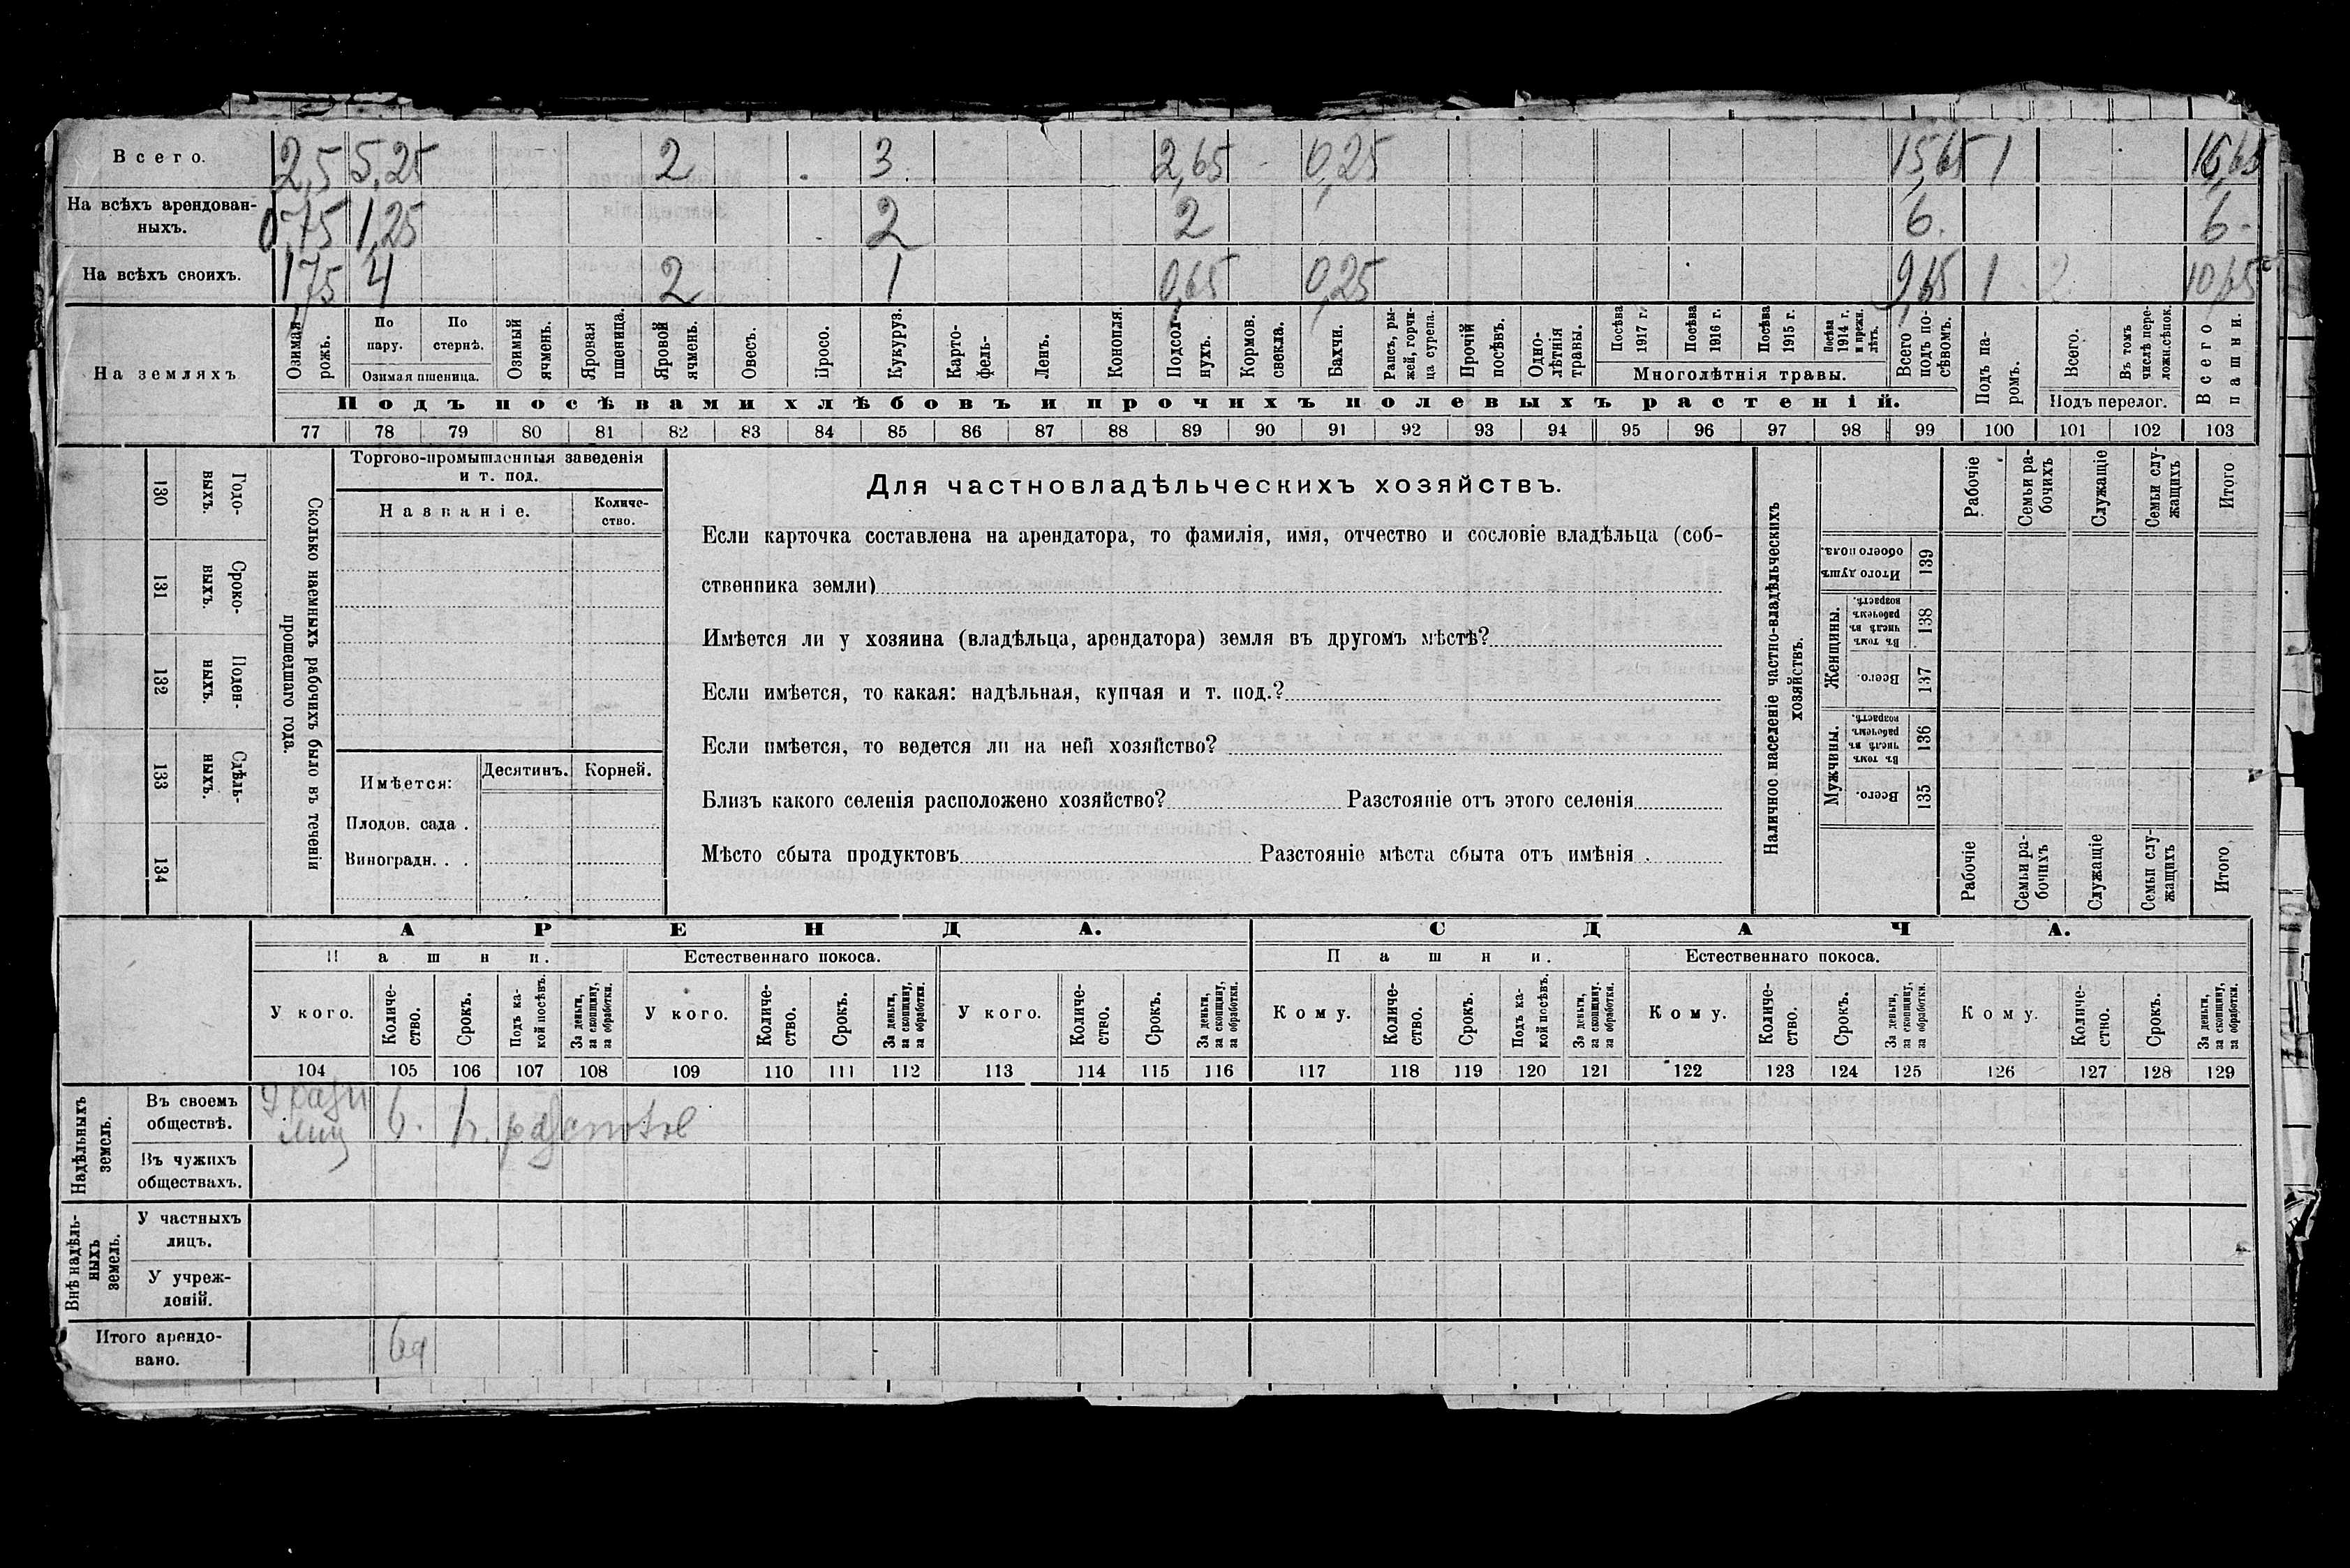 Всего. 2,5 5,25 2 3 2,65 0,25 15,65 1 16,65
На всѣхъ арендован-
ныхъ. 0,75 1,25 2 2 6. 6-
На всѣхъ своихъ. 1,75 4 2 1 0,65 0,25 9,65 1 2 10,65
На земляхъ
Озимая рожь.
По пару.
По стернѣ.
Озимая пшеница.
Озимый ячмень.
Яровая пшеница.
Яровой ячмень.
Овесъ.
Просо.
Кукуруз.
Карто-
фель-
Ленъ.
Конопля.
Подсол
нухъ.
Кормов. свекла.
Бахчи.
Рапсъ, ры-
жей, горчи-
ца сурепа.
Прочій посѣвъ.
Одно-
лѣтнія травы.
Посѣва 1917 г.
Посѣва 1916 г.
Посѣва 1915 г.
Посѣва 1914 г. и прежн. лѣтъ.
Многолѣтнія травы.
Всего подъ по-
сѣвомъ.
Подъ па-
ромъ.
Всего.
Въ томъ числѣ пере-
ложн.сѣнок.
Подъ перелог.
Всего пашни.
Подъ посѣвами хлѣбовъ и прочихъ полевыхъ растеній.
77 78 79 80 81 82 83 84 85 86 87 88 89 90 91 92 93 94 95 96 97 98 99 100 101 102 103
130 Годо-
выхъ.
131 Сроко-
выхъ.
132 Поден-
ныхъ.
133 Сдѣль-
ныхъ.
134
Сколько наемныхъ рабочихъ было въ теченіи
прошедшаго года.
Торгово-промышленныя заведенія
и т. под.
Названіе.
Количе-
ство.
Имѣется: Десятинъ. Корней.
Плодов. сада .
Виноградн. . .
Для частновладѣльческихъ хозяйствъ.
Если карточка составлена на арендатора, то фамилія, имя, отчество и сословіе владѣльца (соб-
ственника земли)
Имѣется ли у хозяина (владѣльца, арендатора) земля въ другомъ мѣстѣ?
Если имѣется, то какая: надѣльная, купчая и т. под.?
Если имѣется, то ведется ли на ней хозяйство?
Близъ какого селенія расположено хозяйство? Разстояніе отъ этого селенія
Мѣсто сбыта продуктовъ Разстояніе мѣста сбыта отъ имѣнія .
Наличное населеніе частно-владѣльческихъ
хозяйствъ.
Рабочіе
Семьи ра-
бочихъ
Служащіе
Семьи слу-
жащихъ
Итого
Итого душъ обоего пола. 139
Женщины.
Въ томъ числѣ въ рабочемъ возрастѣ. 138
Всего. 137
Мужчины.
Въ томъ числѣ въ рабочемъ возрастѣ. 136
Всего. 135
Рабочіе
Семьи ра-
бочихъ
Служащіе
Семьи слу-
жащихъ
Итого
АРЕНДА. СДАЧА.
Пашни. Естественнаго покоса. Пашни. Естественнаго покоса.
У кого.
Количе-
ство.
Срокъ.
Подъ ка-
кой посѣвъ.
За деньги, за скопщину, за обработки.
У кого.
Количе-
ство.
Срокъ.
За деньги, за скопщину, за обработки.
У кого.
Количе-
ство.
Срокъ.
За деньги, за скопщину, за обработки.
Кому.
Количе-
ство.
Срокъ.
Подъ ка-
кой посѣвъ.
За деньги, за скопщину. за обработки.
Кому.
Количе-
ство.
Срокъ.
За деньги, за скопщину, за обработки.
Кому.
Количе-
ство.
Срокъ.
За деньги, за скопщину, за обработки.
104 105 106 107 108 109 110 111 112 113 114 115 116 117 118 119 120 121 122 123 124 125 126 127 128 129
Надѣльныхъ земель.
Въ своемъ
обществѣ. 6. 1г.
Въ чужихъ
обществахъ.
Внѣ надѣль-
ныхъ земель.
У частныхъ
лицъ.
У учреж-
деній.
Итого арендо-
вано. 6д